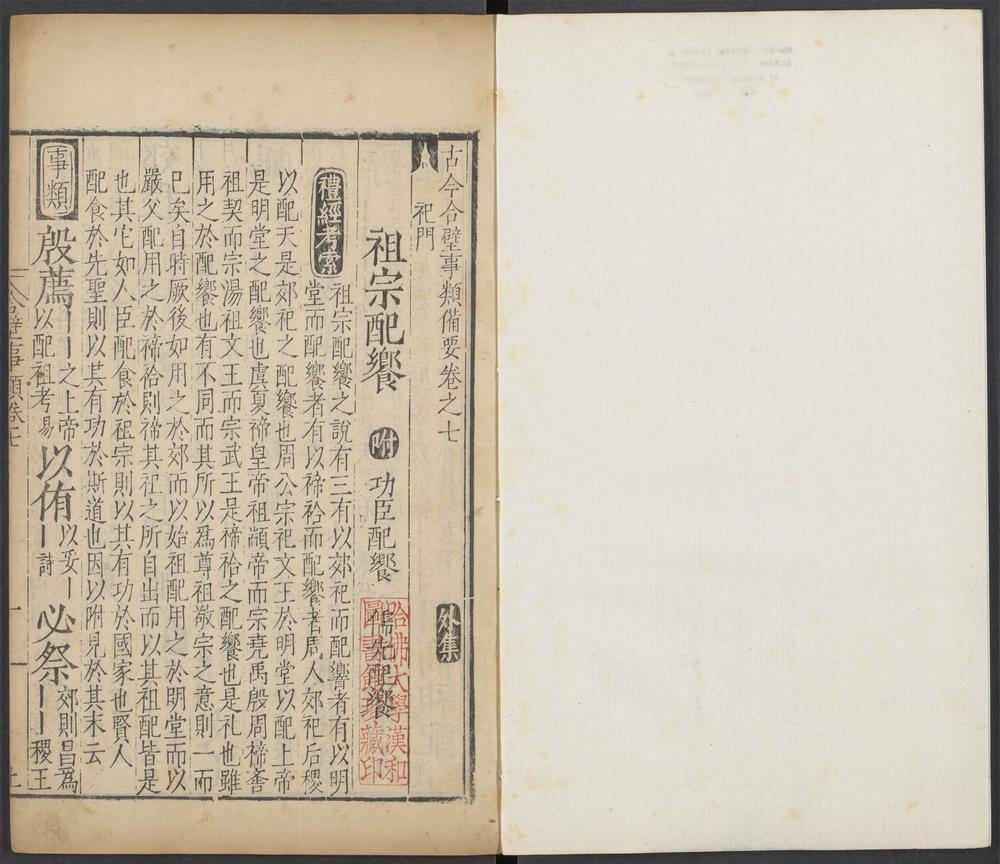 古今合璧事類備要卷之七 外集
祀門
祖宗配饗 附 功臣配饗 儒先配饗
哈佛大學漢和圖書館珍藏印
禮經考索 祖宗配饗之說有三有以郊祀而配饗者有以明
堂而配饗者有以禘祫而配饗者周人郊祀后稷
以配天是郊祀之配饗也周公宗祀文王於明堂以配上帝
是明堂之配饗也虞夏禘皇帝祖顓帝而宗堯禹殷周禘嚳
祖契而宗湯祖文王而宗武王是禘祫之配饗也是礼也雖
用之於配饗也有不同而其所以爲尊祖敬宗之意則一而
巳矣自時厥後如用之於郊而以始祖配用之於明堂而以
嚴父配用之於禘祫則禘其祖之所自出而以其祖配皆是
也其它如人臣配食於祖宗則以其有功於國家也賢人
配食於先聖則以其有功於斯道也因以附見於其末云
事類 殷薦丨丨之上帝以配祖考易 以侑丨以妥丨詩 必祭丨丨郊則昌爲丨稷王
合璧事類卷七